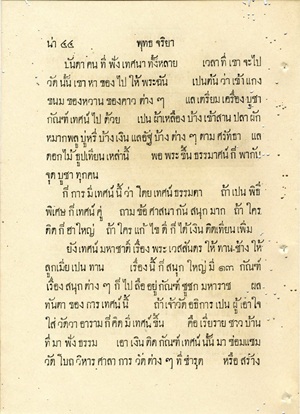 น่า ๔๔ พุทธ จริยา
บันดา คน ที่ ฟัง เทศนา ทั้งหลาย เวลา ที่ เขา จะไป
วัด นั้น เขา หา ของ ไป ให้ พระฉัน เปนต้น ว่า เข้าแกง
ขนม ของหวาน ของคาว ต่าง ๆ แล เตรียม เครื่อง บูชา
กัณฑ์ เทศน์ ไป ด้วย เปน ผ้าเหลือง บ้าง เข้าสาน ปลา ผัก
หมากพลู บูหรี่ บ้าง เงิน แลอัฐ บ้าง ต่าง ๆ ตาม ศรัทธา แล
ดอกไม้ ธูปเทียน เหล่านี้ พอ พระ ขึ้น ธรรมาศน์ ก็ พากัน
จุด บูชา ทุกคน
ก็ การ มี เทศน์ นี้ ว่า โดย เทศน์ ธรรมดา ถ้า เปน พิธี
พิเศษ ก็ เทศน์ คู่ ถาม ข้อ ศาสนา กัน สนุก มาก ถ้า ใคร
ติด ก็ ฮาใหญ่ ถ้า ใคร แก้ ไข ดี ก็ ได้ เงิน ติดเทียน เพิ่ม
ยัง เทศน์ มหาชาติ เรื่อง พระ เวสสันดร ให้ ทาน ช้าง ให้
ลูกเมีย เปน ทาน เรื่อง นี้ ก็ สนุก ใหญ่ มี ๑๓ กัณฑ์
เรื่อง สนุก ต่าง ๆ ก็ ไป ลือ อยู่ กัณฑ์ ชูชก มหาราช ผล
ทันตา ของ การ เทศน์ นี้ ถ้า เจ้าวัด อธิการ เปน ผู้เอาใจ
ใส่ วัดวา อาราม ก็ คิด มี เทศน์ ขึ้น คือ เรี่ยราย ชาว บ้าน
ที่ มา ฟัง ธรรม เอา เงิน ติด กัณฑ์ เทศน์ นั้น มา ซ่อมแซม
วัด โบถ วิหาร ศาลา การ วัด ต่าง ๆ ที่ ชำรุด หรือ สร้าง